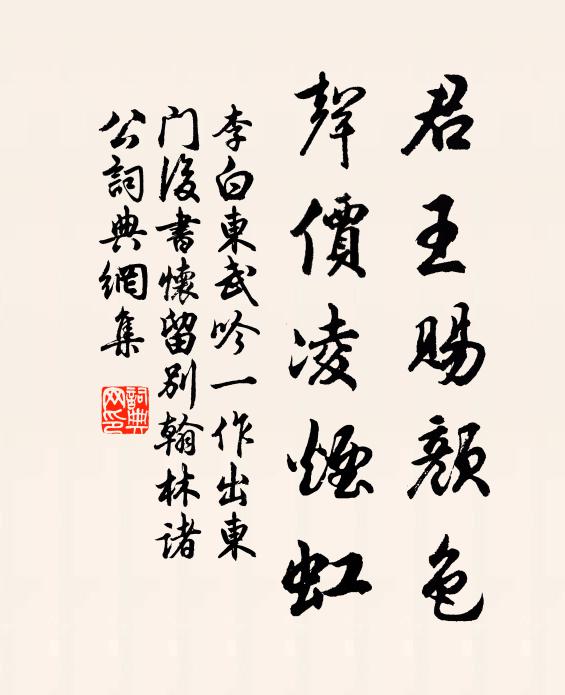 君王賜顏色
聲價凌煙虹
李白東武吟一作出東
门後書懷留别翰林諸
公詞典網集
詞典网印